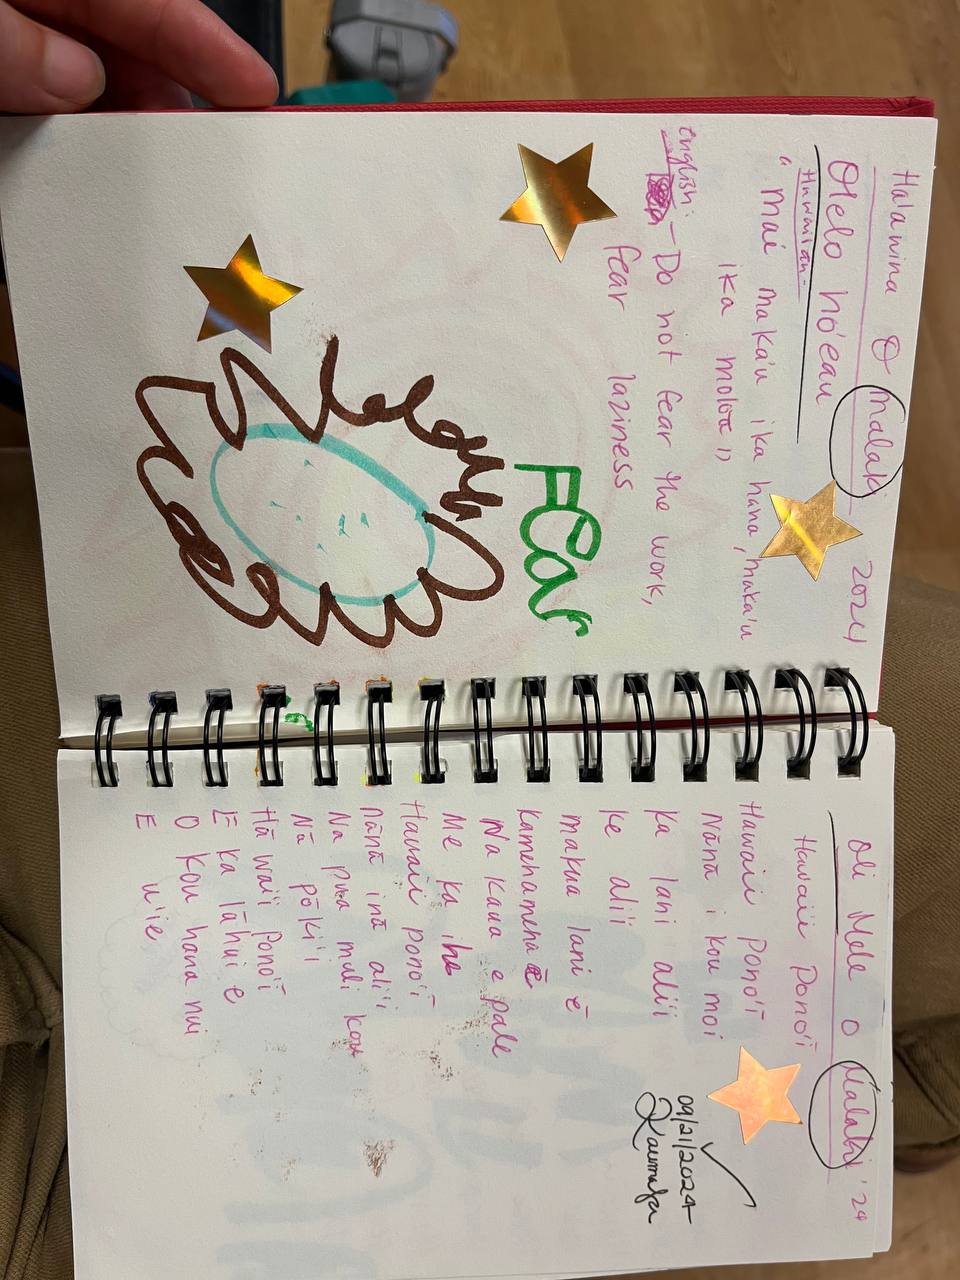 Halawina O Malaki 2024
Olelo no'eau
Hawaiian-
" mai maka'u ika hana, maka'u
ika moloā "
english:
- Do not fear the work,
fear laziness
Fear
Oli Mele O Malaki '24
Hawaii Pono'ī
Hawaii Pono'ī
Nānā i kou moi
Ka lani alii
ke alii
makua lani ē
Kamehameha ē
Na kaua e pale
Me ka ihe
Hawaii pono'ī
nānā inā ali'i
Na pua muli kou
Nā pōki'i
Hā wai'i Pono'ī
Ē ka lāhui e
O kou hana nui
E u'ie
09/21/2024